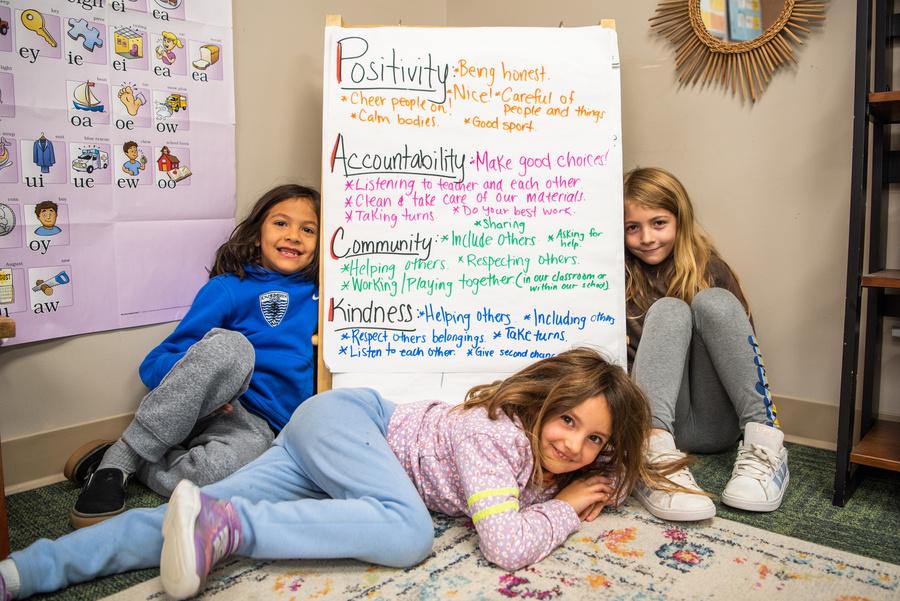 ei
ea
ey
ie
ei
ea
ea
oa
oe
ow
ui
ue
ew
oo
oy
August
aw
Positivity: Being honest.
* Cheer people on! * Nice! * Careful of people and things
* Calm bodies. * Good sport.
Accountability: * Make good choices!
* Listening to teacher and each other
* Clean & take care of our materials.
* Taking turns * Do your best work.
* sharing
Community: * Include others * Asking for help.
* Helping others. * Respecting others.
* Working/Playing together (in our classroom or within our school)
Kindness: * Helping others * Including others
* Respect others belongings. * Take turns.
* Listen to each other. * Give second